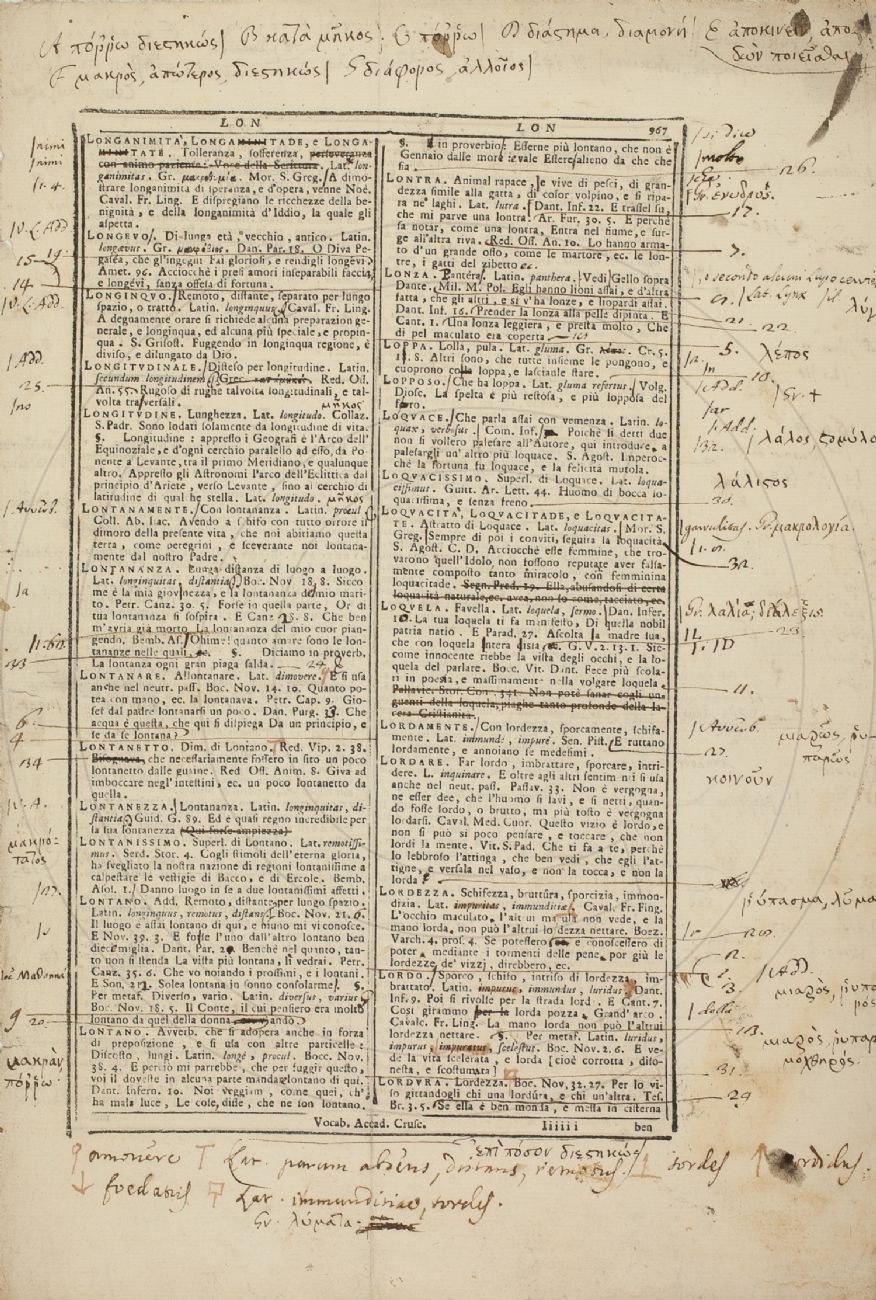 A πόῤῥω διεςηκώς| B κατὰ μῆκος| C πόῤῥω| D διάςημα, διαμονή| E ἀποκινεῖν,
F μακρὸς, ἀπώτερος, διεςηκὼς| G διάφορος, ἀλλοῖος|
LON
LON 967
LONGANIMITA', LONGANIMITADE, e LONGA-
NIMITATE. Tolleranza, sofferenza, perseveranza
con animo paziente. Lat. lon-
ganimitas. Gr. Mor. S. Greg. A dimo-
strare longanimità di speranza, e d'opera, venne Noè.
Caval. Fr. Ling. E dispregiano le ricchezze della be-
nignità, e della longanimità d'Iddio, la quale gli
aspetta.
LONGEVO. Di lunga età, vecchio, antico. Latin.
longævus. Gr. Dan. Par. 18. O Diva Pe-
gasea, che gl'ingegni Fai gloriosi, e rendigli longevi.
Amet. 96. Acciocchè i presi amori inseparabili faccia,
e longevi, sanza offesa di fortuna.
LONGINQUO. Remoto, distante, separato per lungo
spazio, o tratto. Latin. longinquus. Caval. Fr. Ling.
A degnamente orare si richiede alcuna preparazion ge-
nerale, e longinqua, ed alcuna più speciale, e propin-
qua. S. Grisost. Fuggendo in longinqua regione, è
diviso, e dilungato da Dio.
LONGITUDINALE. Disteso per longitudine. Latin.
secundum longitudinem. Red. Oss.
An. 55. Rugoso di rughe talvolta longitudinali, e tal-
volta trasversali. μῆκος
LONGITUDINE. Lunghezza. Lat. longitudo. Collaz.
S. Padr. Sono lodati solamente da longitudine di vita.
§. Longitudine: appresso i Geografi è l'Arco dell'
Equinoziale, e d'ogni cerchio paralello ad esso, da Po-
nente a Levante, tra il primo Meridiano, e qualunque
altro. Appresso gli Astronomi l'arco dell'Eclittica dal
principio d'Ariete, verso Levante, sino al cerchio di
latitudine di qualche stella. Lat. longitudo. μῆκος
LONTANAMENTE. Con lontananza. Latin. procul.
Coll. Ab. Isac. Avendo a schifo con tutto orrore il
dimoro della presente vita, che noi abitiamo questa
terra, come peregrini, e sceverante noi lontana-
mente dal nostro Padre.
LONTANANZA. Lunga distanza di luogo a luogo.
Lat. longinquitas, distantia. Boc. Nov. 18. 8. Sicco-
me è la mia giovinezza, e la lontananza del mio mari-
to. Petr. Canz. 30. 5. Forse in quella parte, Or di
tua lontananza si sospira. E Canz. 8. Che ben
m'avria già morto La lontananza del mio cuor pian-
gendo. Bemb. As. Ohimè! quanto amare sono le lon-
tananze nelle quali, ec. §. Diciamo in proverb.
La lontananza ogni gran piaga salda.
LONTANARE. Allontanare. Lat. dimovere. E si usa
anche nel neutr. pass. Boc. Nov. 14. 10. Quanto po-
tea con mano, ec. la lontanava. Petr. Cap. 9. Gio-
sef dal padre lontanarsi un poco. Dan. Purg. 33. Che
acqua è questa, che qui si dispiega Da un principio, e
se da se lontana?
LONTANETTO. Dim. di Lontano. Red. Vip. 2. 38.
Bisognava, che necessariamente fossero in sito un poco
lontanetto dalle guaine. Red. Oss. Anim. 8. Giva ad
imboccare negl'intestini, ec. un poco lontanetto da
quella.
LONTANEZZA. Lontananza. Latin. longinquitas, di-
stantia. Guid. G. 89. Ed è quasi regno incredibile per
la sua lontanezza (Qui forse ampiezza)
LONTANISSIMO. Superl. di Lontano. Lat. remotissi-
mus. Serd. Stor. 4. Cogli stimoli dell'eterna gloria,
ha svegliato la nostra nazione di regioni lontanissime a
calpestare le vestigie di Bacco, e di Ercole. Bemb.
Asol. 1. Danno luogo in se a due lontanissimi affetti.
LONTANO. Add. Remoto, distante per lungo spazio.
Latin. longinquus, remotus, distans. Boc. Nov. 21. 6.
Il luogo è assai lontano di qui, e niuno mi vi conosce.
E Nov. 39. 3. E fosse l'uno dall'altro lontano ben
diece miglia. Dant. Par. 2. Benchè nel quanto, tan-
to non si stenda La vista più lontana, lì vedrai. Petr.
Canz. 35. 6. Che vo noiando i prossimi, e i lontani.
E Son. 212. Solea lontana in sonno consolarme. §.
Per metaf. Diverso, vario. Latin. diversus, varius.
Boc. Nov. 18. 5. Il Conte, il cui pensiero era molto
lontano da quel della donna
LONTANO. Avverb. che si adopera anche in forza
di preposizione, e si usa con altre particelle:
Discosto, lungi. Latin. longè, procul. Bocc. Nov.
38. 4. E perciò mi parrebbe, che per fuggir questo,
voi il doveste in alcuna parte mandar lontano di qui.
Dant. Infern. 10. Noi veggiam, come quei, ch'
ha mala luce, Le cose, disse, che ne son lontano.
§. in proverbio: Esserne più lontano, che non è
Gennaio dalle more: e vale Essere alieno da che che
sia.
LONTRA. Animal rapace, e vive di pesci, di gran-
dezza simile alla gatta, di color volpino, e si ripa-
ra ne' laghi. Lat. lutra. Dant. Inf. 22. E trassel su,
che mi parve una lontra. Ar. Fur. 30. 5. E perchè
fa notar, come una lontra, Entra nel fiume, e sur-
ge all'altra riva. Red. Oss. An. 10. Lo hanno arma-
to d'un grande osso, come le martore, ec. le lon-
tre, i gatti del zibetto ec.
LONZA. Pantera. Latin. panthera. Vedi Gello sopra
Dante. Mil. M. Pol. Egli hanno lioni assai, e d'altra
fatta, che gli altri, e sì v'ha lonze, e liopardi assai.
Dant. Inf. 16. Prender la lonza alla pelle dipinta. E
Cant. 1. Una lonza leggiera, e presta molto, Che
di pel maculato era coperta.
LOPPA. Lolla, pula. Lat. gluma. Gr. Cr. 5.
18. 8. Altri sono, che tutte insieme le pongono, e
cuoprono colla loppa, e lascianle stare.
LOPPOSO. Che ha loppa. Lat. gluma refertus. Volg.
Diosc. La spelta è più restosa, e più lopposa del
farro.
LOQUACE. Che parla assai con vemenza. Latin. lo-
quax, verbosus. Com. Inf. Poichè li detti due
non si vollero palesare all'Autore, qui introduce a
palesargli un'altro più loquace. S. Agost. Imperoc-
chè la fortuna fu loquace, e la felicità mutola.
LOQUACISSIMO. Superl. di Loquace. Lat. loqua-
cissimus. Guitt. Ar. Lett. 44. Huomo di bocca lo-
quacissima, e senza freno
LOQUACITA, LOQUACITADE, e LOQUACITA-
TE. Astratto di Loquace. Lat. loquacitas. Mor. S.
Greg. Sempre di poi i conviti, seguita la loquacità.
S. Agost. C. D. Acciocchè esse femmine, che tro-
varono quell'Idolo, non fossono reputate aver falsa-
mente composto tanto miracolo, con femminina
loquacitade. Segn. Pred. 29. Ella, abusandosi di certa
loquacità naturale, ec. avea, non so come, tacciato, ec.
LOQUELA. Favella. Lat. loquela, sermo. Dan. Infer.
10. La tua loquela ti fa manifesto, Di quella nobil
patria natio. E Parad. 27. Ascolta la madre sua,
che con loquela intera disia. G. V. 2. 13. 1. Sic-
come innocente riebbe la vista degli occhi, e la lo-
quela del parlare. Boc. Vit. Dant. Fece più scola-
ri in poesia, e massimamente nella volgare loquela.
Pallavic. Stor. Con. 341. Non potè sanar cogli un-
guenti della loquela, piaghe tanto profonde della la-
cera Cristianità.
LORDAMENTE. Con lordezza, sporcamente, schifa-
mente. Lat. inmundè, impurè. Sen. Pist. E ruttano
lordamente, e annoiano se medesimi.
LORDARE. Far lordo, imbrattare, sporcare, intri-
dere. L. inquinare. E oltre agli altri sentim. si usa
anche nel neut. pass. Passav. 33. Non è vergogna,
ne esser dee, che l'huomo si lavi, e si netti, quan-
do fosse lordo, o brutto, ma più tosto è vergogna
lordarsi. Caval. Med. Cuor. Questo vizio è lordo, e
non si può sì poco pensare, e toccare, che non
lordi la mente. Vit. S. Pad. Che ti fa a te, perchè
lo lebbroso l'attinga, che ben vedi, che egli l'at-
tigne, e versala nel vaso, e non la tocca, e non la
lorda
LORDEZZA. Schifezza, bruttura, sporcizia, immon-
dizia. Lat. impuritas, immunditiæ. Caval. Fr. Fing.
L'occhio maculato, l'altrui macula non vede, e la
mano lorda, non può l'altrui lordezza nettare. Boez.
Varch. 4. pros. 4. Se potessero e conoscessero di
poter, mediante i tormenti delle pene, por giù le
lordezze, de' vizzj, direbbero, ec.
LORDO. Sporco, schifo, intriso di lordezza, im-
brattato. Latin. impurus, immundus, luridus. Dant.
Inf. 9. Poi si rivolse per la strada lorda. E Cant. 7.
Così girammo per la lorda pozza, Grand'arco.
Cavalc. Fr. Ling. La mano lorda non può l'altrui
lordezza nettare. §. Per metaf. Latin. luridus,
impurus, impuratus, scelestus. Boc. Nov. 2. 6. E ve-
de la vita scelerata, e lorda [cioè corrotta, diso-
nesta, e scostumata]
LORDURA. Lordezza. Boc. Nov. 32. 27. Per lo vi-
so gittandogli chi una lordura, e chi un'altra. Tes.
Br. 3. 5. Se essa è ben monda, e messa in cisterna
Vocab. Accad. Crusc. Iiiiii ben
15
14
25
33
6
4
134
9 20
μακρό-
τατος
μακρὰν,
πόῤῥω
26.
17.
22.
5. λέπος
10.
λάλος,
λάλιςος
Gr. μακρολογία
32
11.
27.
κοινοῦν
31
29
amovere Lat. parum absens, distans, remotus. sordes sordidus.
ἐπὶ πόσον διεςηκὼς
foedatus Lat. immunditiae, sordes.
Gr. λύματα